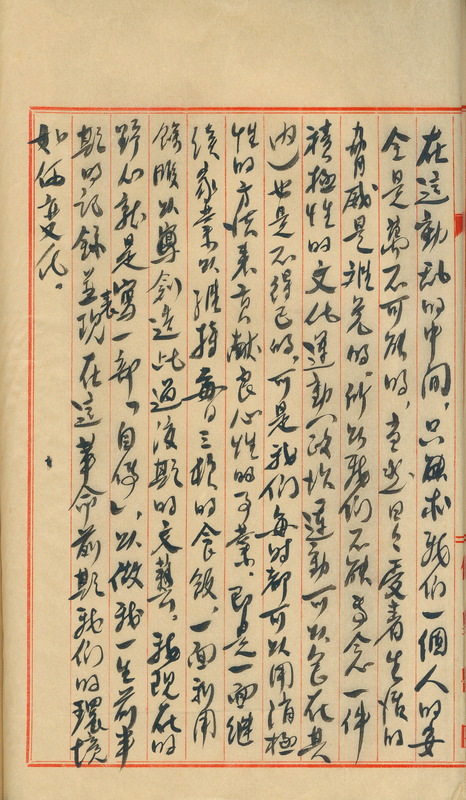 在這動亂的中間，只能求我們一個人的安
全是萬不可能的，當然日日受着生活的
脅威是難免的，所以我們不能專念一件
積極性的文化運動（政治運動可以包在其
內）也是不得已的，可是我們每時都可以用消極
性的方法來貢獻良心性的事業，即是一面繼
續家業以維持每日三頓的食飯，一面利用
餘暇以專創造此過渡期的文藝，我現在的
野心就是寫一部「自傳」，以做我一生前半
期的記錄並表現在這革命前期我們的環境
如何變化。